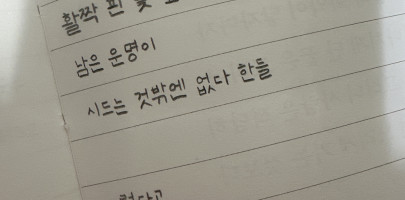 활짝 핀 꽃
남은 운명이
시드는 것밖엔 없다 한들